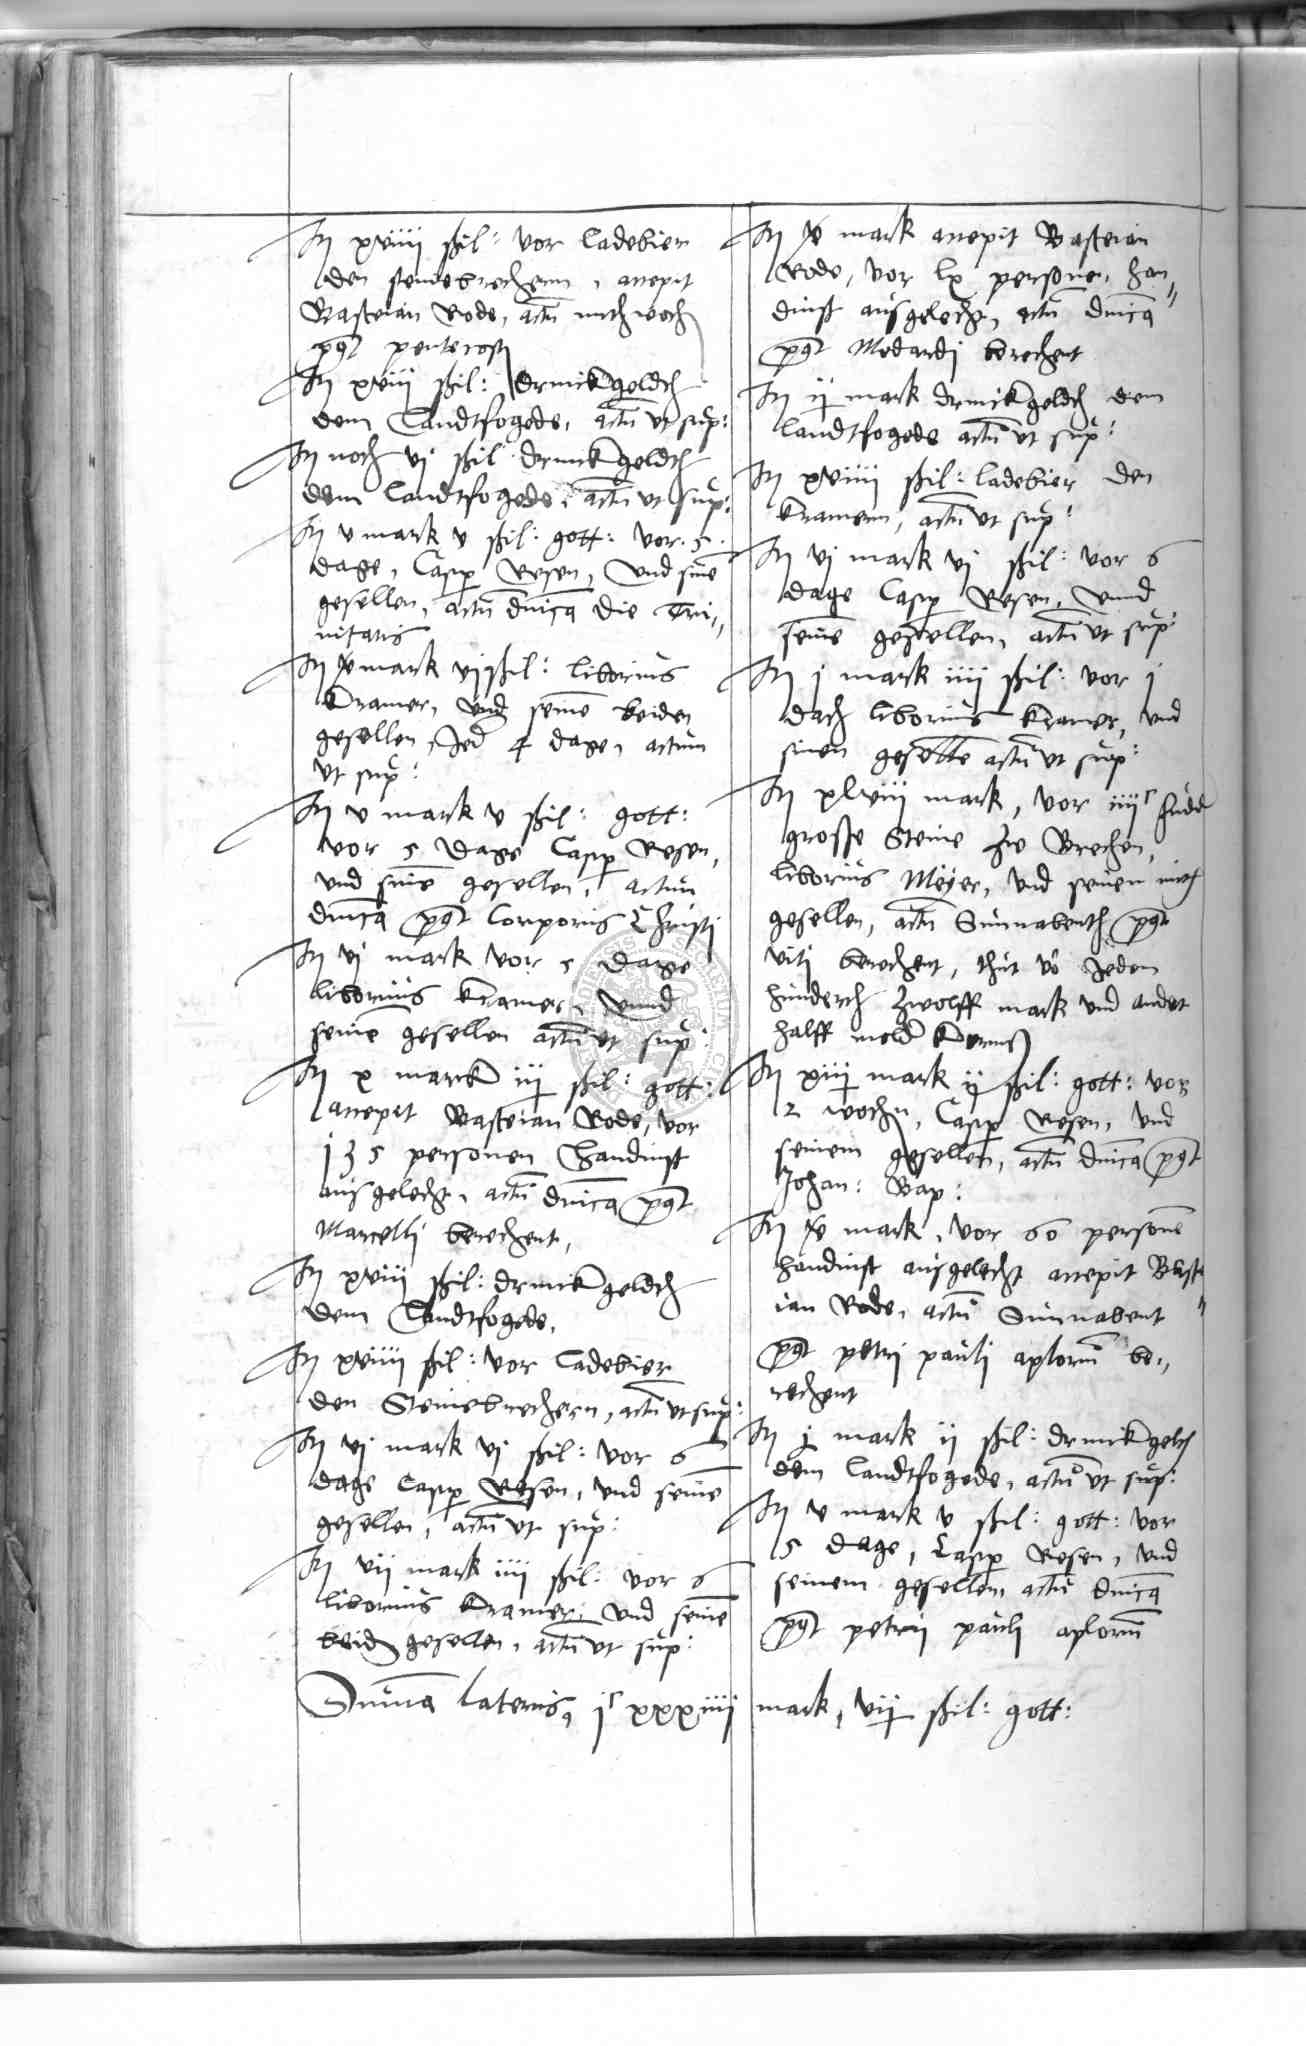 Itm xviiii ßil: vor ladebier
den steinebrechernn, accepit
Basteian Rode, actũ mithwoch
post pentecosti
Itm xviii ßil: drinckgeldth
dem Landtfogede, actũ ut sup:
Itm noch vj ßil drinckgeldth
dem landtfogede, actũ ut sup:
Itm v mark v ßil: gott: vor 5
dage, Casp Resen, Und sinẽ
gesellen, actũ dnica die Tri„
nitatis
Itm mark vj ßil: liborius
Kramer, und seinẽ beiden
gesellen, Jed 4 dage, actum
ut sup:
Itm v mark v ßil: gott:
vor 5 dage Casp Resen,
und sinẽ gesellen, actum
dnica post Corporis Christi
Itm vj mark vor 5 dage
liborius Kramer, unnd
seinẽ gesellen actũ ut sup:
Itm x marck iij ßil: gott:
accepit Basteian Rode, vor
135 personen Handinst
ausgelecht, actũ dnica post
Marcelli berechent,
Itm xviii ßil: drinckgeldth
dem Landtfogede,
Itm xviiii ßil: vor Ladebier
den Steinebrechern, actũ ut sup:
Itm vj mark vj ßil: vor 6
dage Casp Resen, und seinẽ
gesellen, actũ ut sup:
Itm vii mark iiii ßil: vor 6
liborius Kramer, und seinẽ
beid gesellen, actũ ut sup:
Itm mark accepit Basteian
Rode, vor lx persone, han„
dinst ausgelecht, actũ dnica
post Medardj berechent
Itm ij mark drinckgeldth dem
landtfogede actũ ut sup:
Itm xviiii ßil: ladebier den
Kramern, actũ ut sup:
Itm vj mark vj ßil: vor 6
dage Casp Resen, unnd
seinẽ gesellen, actũ ut sup:
Itm j mark iiii ßil: vor j
dach liborius Kramer, und
sinen geselle actũ ut sup:
Itm xlviii mark, vor iiiiᶜ fudd
grosse Steine zue Brechen,
liborius Meyer, und seinen
gesellen, actũ Sunnabenth post
viti berechent, thut vo Jedem
hunderth zwolff mark und andert
halff mold Korns
Itm xiij mark ij ßil: gott: vor
2 wochn, Casp Resen, und
seinem gesellen, actũ dnica post
Johan: Bap:
Itm mark, vor 60 personẽ
handinst ausgelecht accepit Bast„
ian Rode, actũ Sunnabent
post petri pauli aplorũ be„
rechent
Itm j mark ij ßil: drinckgelth
dem landtfogede, actũ ut sup:
Itm v mark v ßil: gott: vor
5 dage, Casp Resen, und
seinem gesellen, actũ dnica
post petri pauli aplorũ
Suma lateris, jᶜ xxxiiij mark, vij ßil: gott: